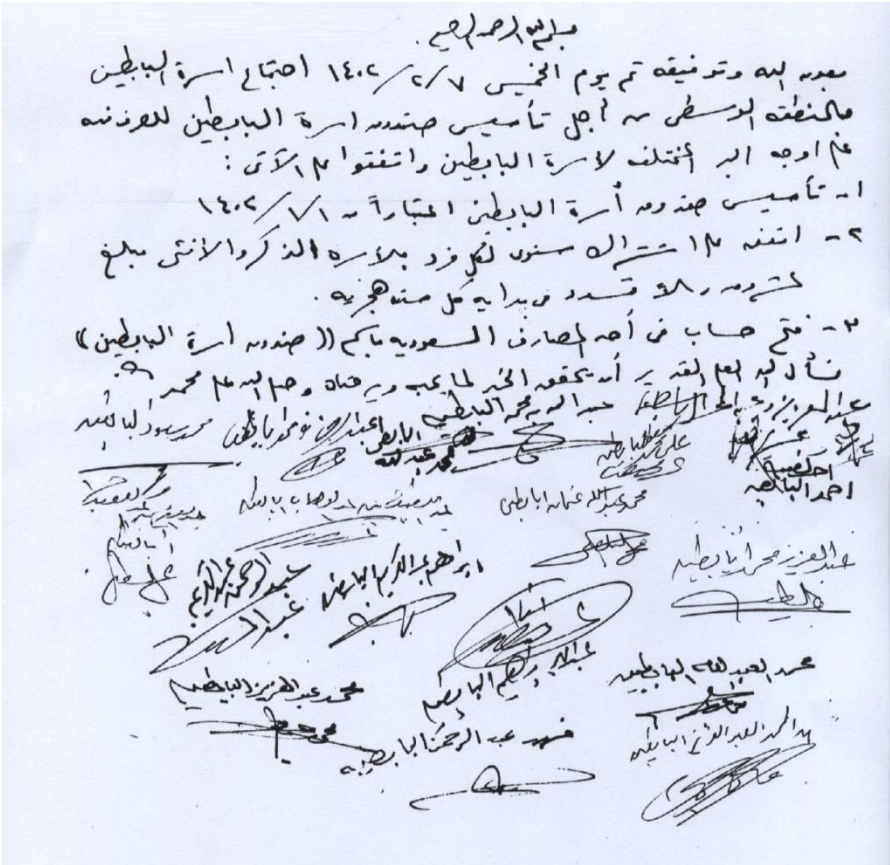 بسم الله الرحمن الرحيم
بعون الله وتوفيقه تم يوم الخميس ١٤٠٢/٢/٧ اجتماع اسرة البابطين
بالمنطقه الوسطى من أجل تأسيس صندوق اسرة البابطين للصرف منه
على اوجه البر المختلفه لأسرة البابطين واتفقوا على الآتى :
١- تأسيس صندوق أسرة البابطين اعتباراً من ١٤٠٢/١/١
٢- اتفق على اشتراك سنوى لكل فرد بالاسره الذكر والأنثى مبلغ
عشرون ريالا تسدد فى بدايه كل سنه هجريه .
٣- فتح حساب فى أحد المصارف السعوديه باسم (( صندوق أسرة البابطين ))
نسأل الله العلى القدير أن يحقق الخير لما يحبه ويرضاه وصلى الله على محمد
عبدالعزيز عبدالله محمد البابطين محمد سعود البابطين
محمد عبدالله
احمد البابطين
محمد عبدالله عثمان البابطين
عبدالعزيز محمد البابطين
ابراهيم عبدالكريم البابطين
عبدالرحمن عبدالكريم
محمد العبدالله البابطين
عبدالله ابراهيم البابطين
محمد عبدالعزيز البابطين
فهد عبدالرحمن البابطين